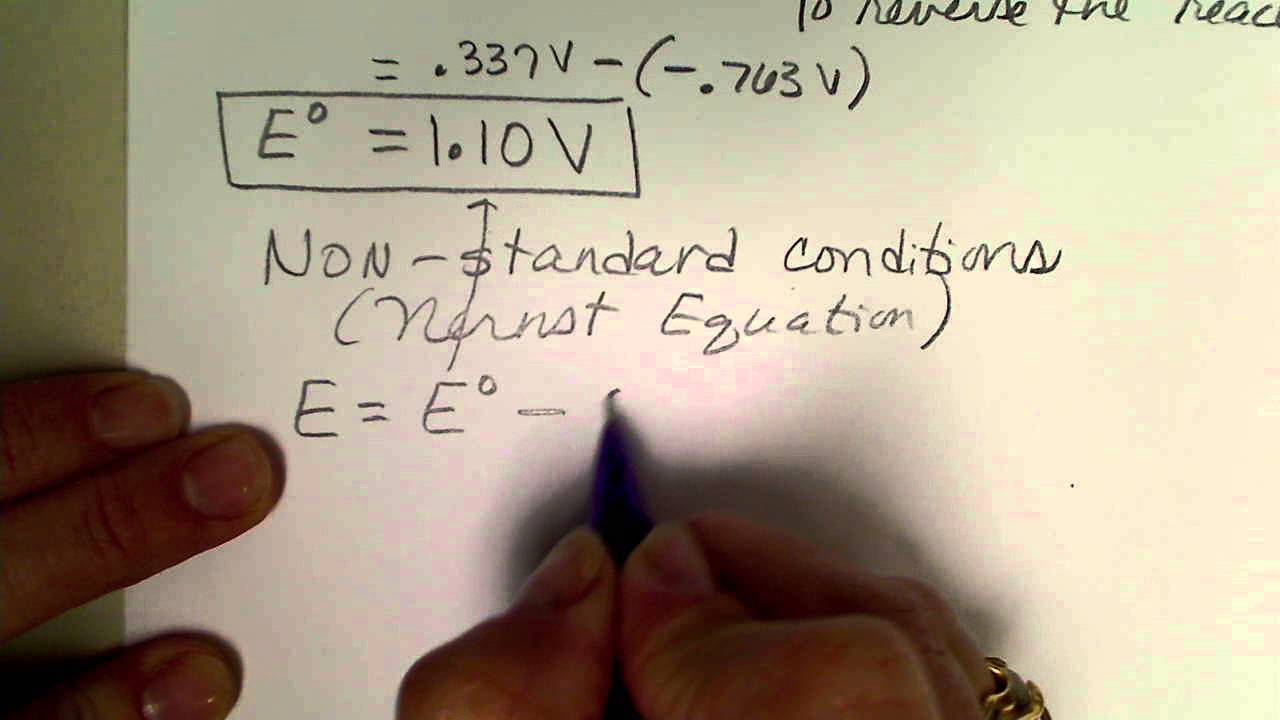 To reverse the reac
= .337V - (-.763 V)
E° = 1.10 V
NON-standard conditions
(Nernst Equation)
E = E° -